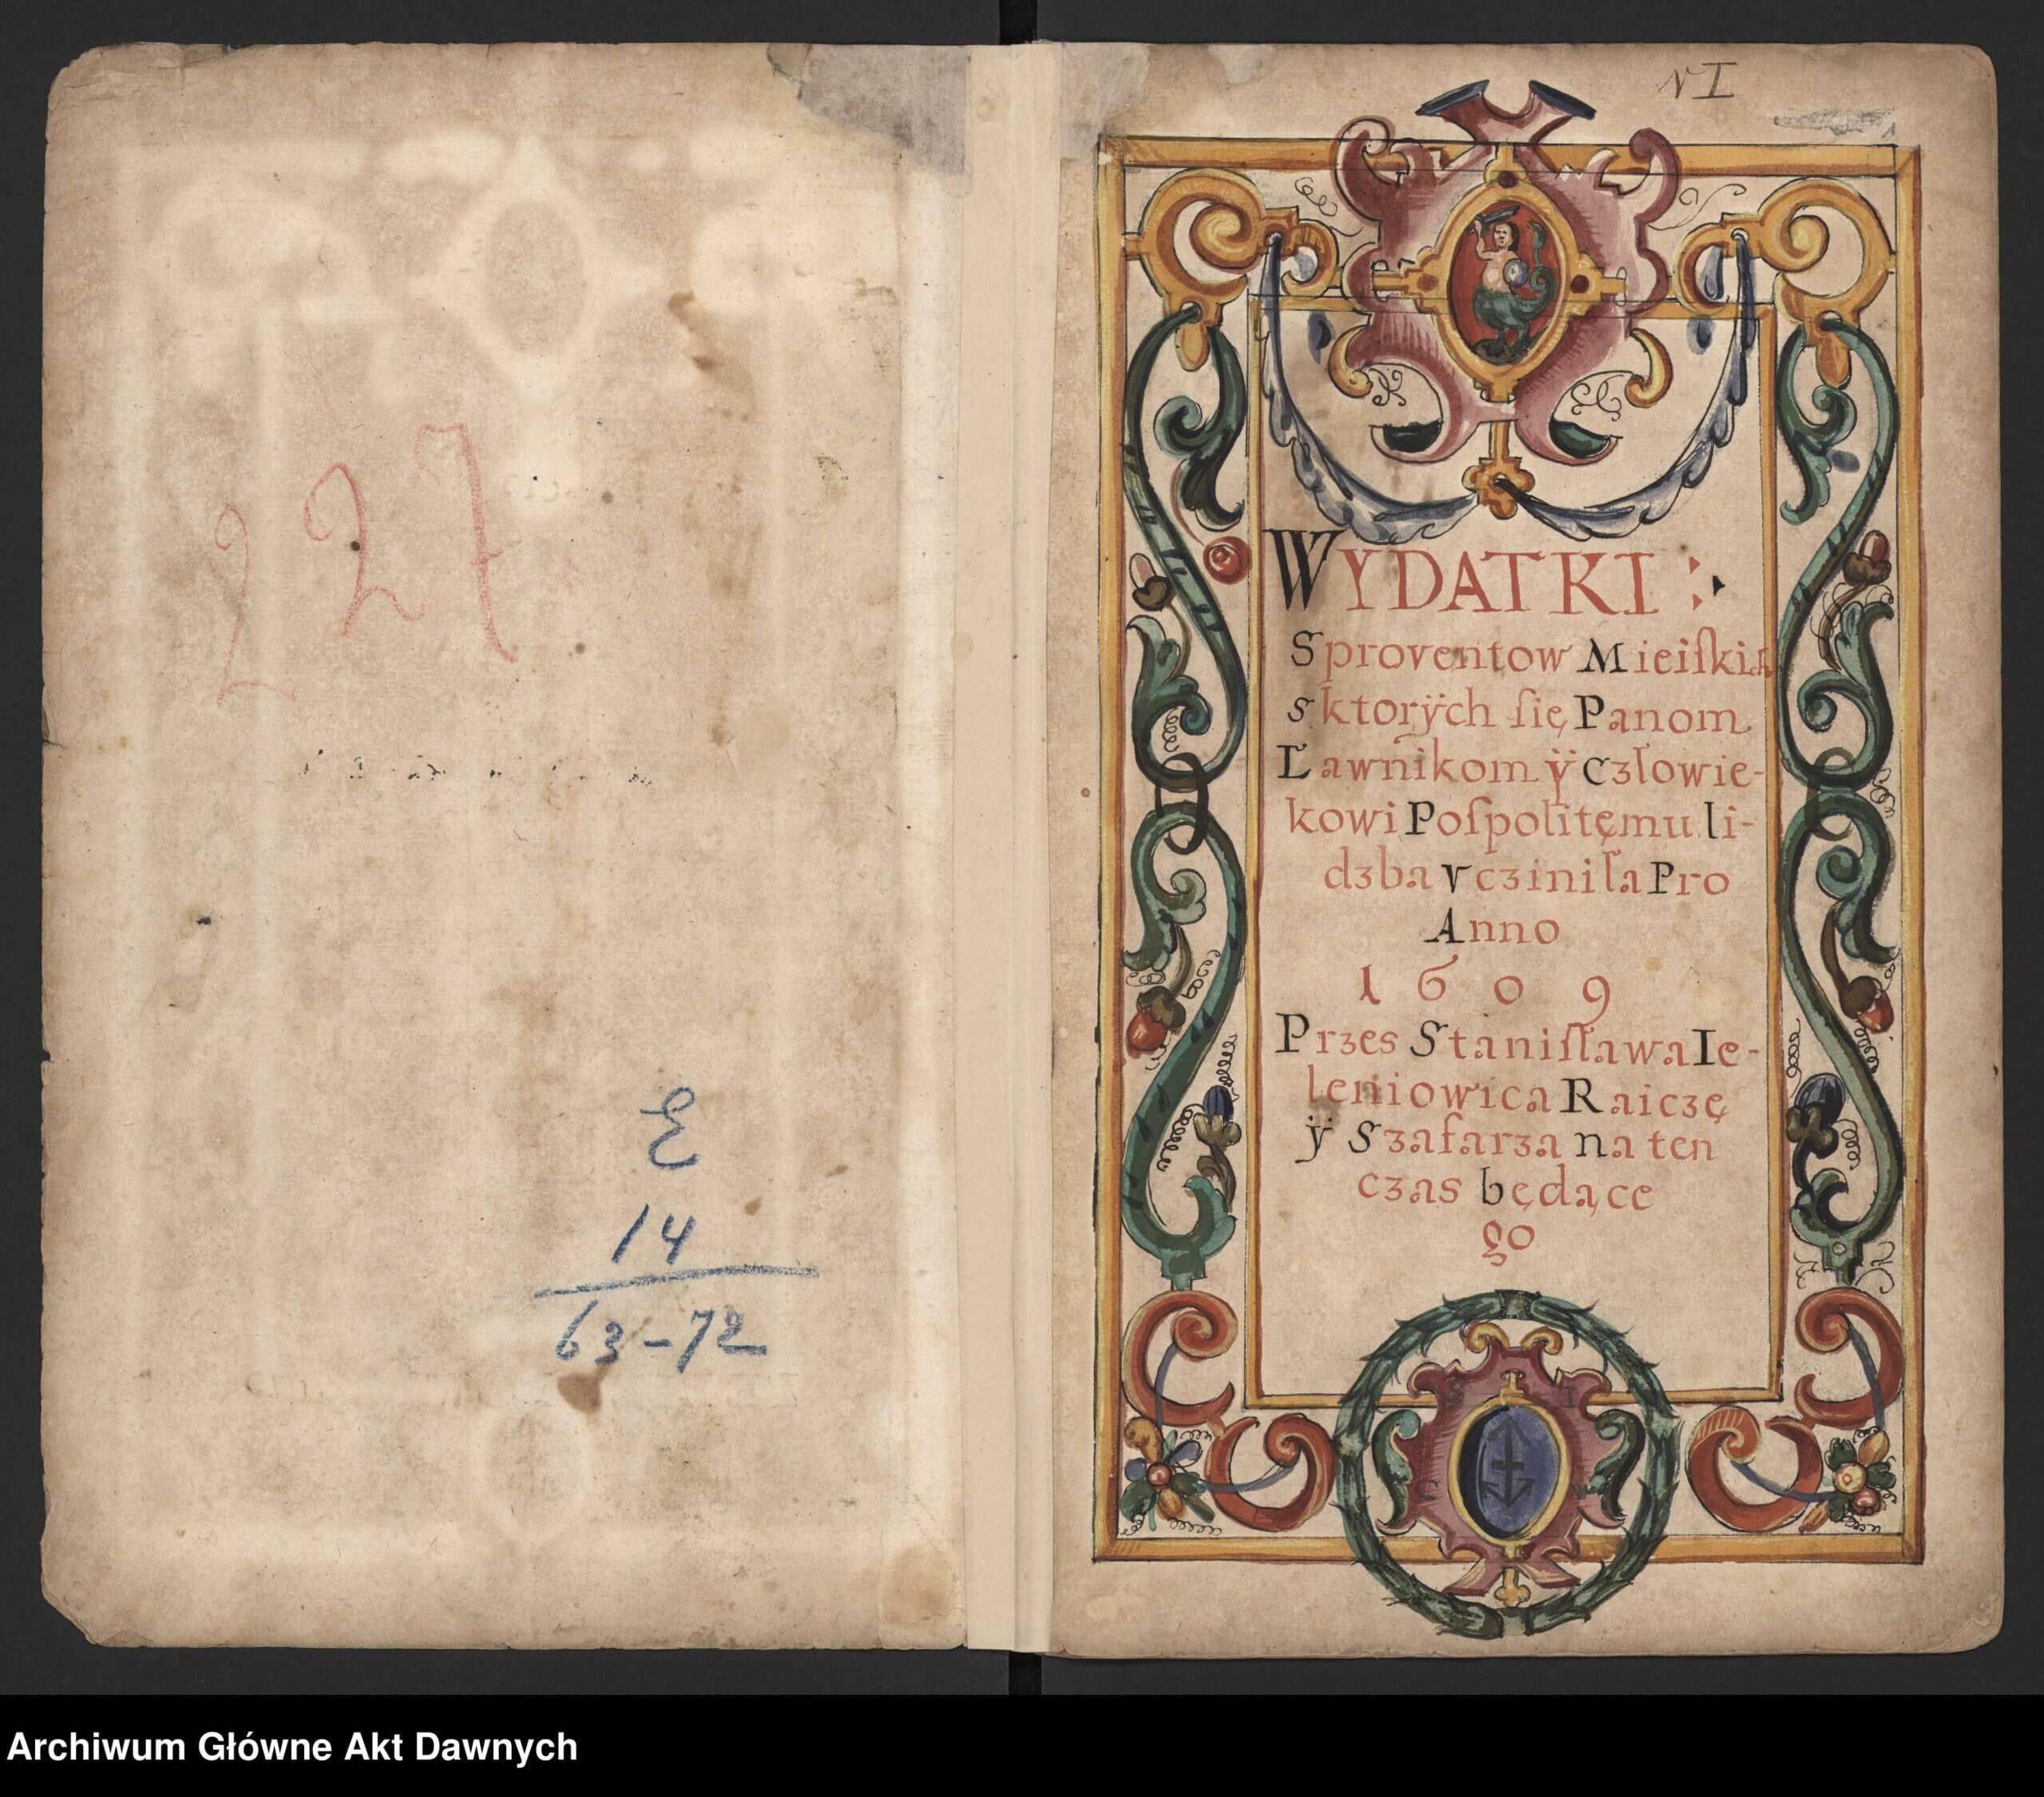 227
E
14
63-72
N I
WYDATKI :
S proventow Mieiſkich
s ktorÿch ſię Panom
Ławnikom ÿ Człowie-
kowi Poſpolitęmu li-
dzba vcziniła Pro
Anno
1609
Przes Staniſława Ie-
leniowica Raiczę
ÿ Szafarza na ten
czas będące
go
Archiwum Główne Akt Dawnych